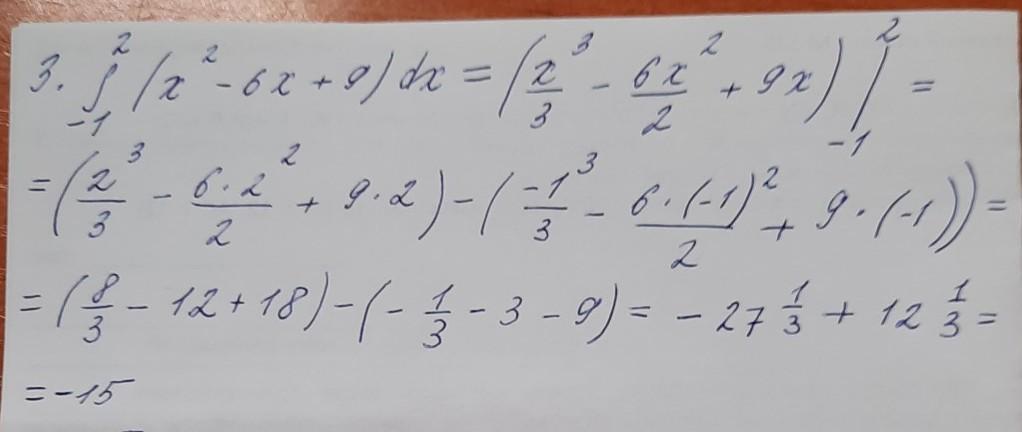 3. ∫₋₁² (x² - 6x + 9) dx = (x³/3 - 6x²/2 + 9x) |₋₁² =
= (2³/3 - 6·2²/2 + 9·2) - (-1³/3 - 6·(-1)²/2 + 9·(-1)) =
= (8/3 - 12 + 18) - (-1/3 - 3 - 9) = -27 1/3 + 12 1/3 =
= -15